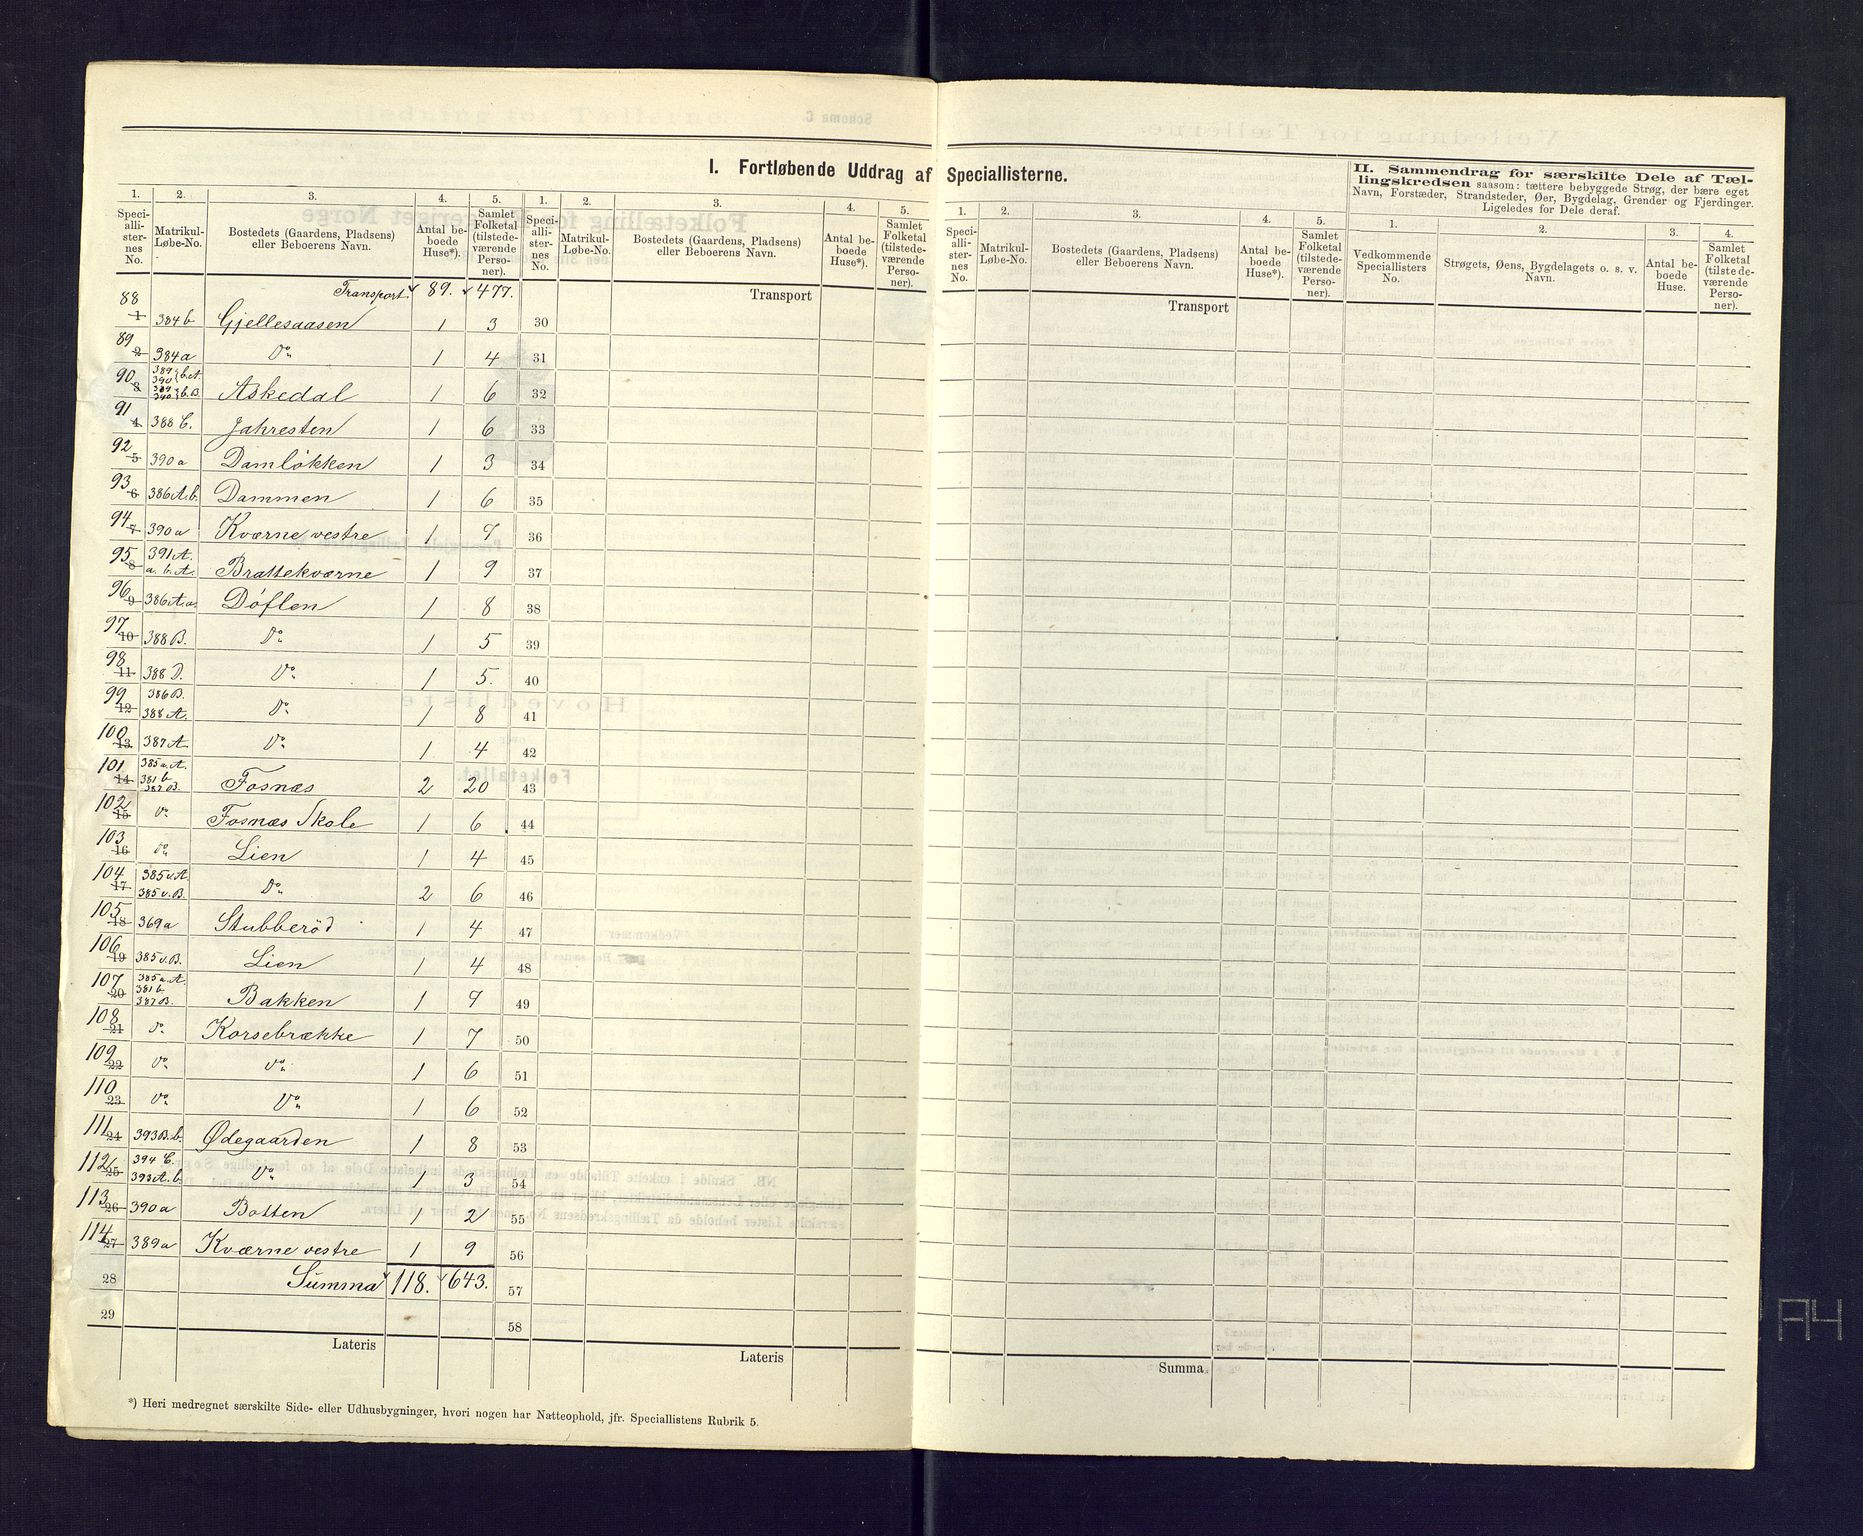 I. Fortløbende Uddrag af Speciallisterne.
II. Sammendrag for særskilte Dele af Tæl-
lingskredsen saasom: tættere bebyggede Strøg, der bære eget
Navn, Forstæder, Strandsteder, Øer, Bygdelag, Grender og Fjerdinger.
Ligeledes for Dele deraf.
1. 2. 3. 4. 5. 1. 2. 3. 4. 5. 1. 2. 3. 4. 5. 1. 2. 3. 4.
Speci-alli-ster-nes No. Matrikul-Løbe-No. Bostedets (Gaardens, Pladsens) eller Beboerens Navn. Antal be-boede Huse*). Samlet Folketal (tilstede-værende Perso-ner).
Speci-alli-ster-nes No. Matrikul-Løbe-No. Bostedets (Gaardens, Pladsens) eller Beboerens Navn. Antal be-boede Huse*). Samlet Folketal (tilstede-værende Perso-ner).
Speci-alli-ster-nes No. Matrikul-Løbe-No. Bostedets (Gaardens, Pladsens) eller Beboerens Navn. Antal be-boede Huse*). Samlet Folketal (tilstede-værende Perso-ner).
Vedkommende Speciallisters No. Strøgets, Øens, Bygdelagets o. s. v. Navn. Antal be-boede Huse. Samlet Folketal (tilstede-værende Perso-ner).
Transport 89. 477. Transport Transport
88 1 384 b Gjellesaasen 1 3 30
89 2 384 a Do 1 4 31
90 3 389 390 b.A. 389 390 b.B. Askedal 1 6 32
91 4 388 C. Jahresten 1 6 33
92 5 390 a Damløkken 1 3 34
93 6 386 A.b. Dammen 1 6 35
94 7 390 a Kværne vestre 1 7 36
95 8 391 A. a. b. A. Brattekværne 1 9 37
96 9 386 A.a. Døflen 1 8 38
97 10 388 B. Do 1 5 39
98 11 388 D. Do 1 5. 40
99 12 386 B. 388 A. Do 1 8 41
100 13 387 A. Do 1 4 42
101 14 385 a. A. 381 b 387 B. Fosnæs 2 20 43
102 15 Do Fosnæs Skole 1 6 44
103 16 Do Lien 1 4 45
104 17 385 v. A. 385 v. B. Do 2 6 46
105 18 369 a Stubberød 1 4 47
106 19 385 v. B. Lien 1 4 48
107 20 385 a. A. 381 b. 387 B. Bakken 1 7 49
108 21 Do Korsebrække 1 7 50
109 22 Do Do 1 6 51
110 23 Do Do 1 6 52
111 24 393 B. b. Ødegaarden 1 8 53
112 25 394 C. 393 A. b. Do 1 3 54
113 26 390 a Botten 1 2 55
114 27 389 a Kværne vestre 1 9 56
28 Summa 118. 643. 57
29 58
Lateris Lateris Summa
*) Heri medregnet særskilte Side- eller Udhusbygninger, hvori nogen har Natteophold, jfr. Speciallistens Rubrik 5.